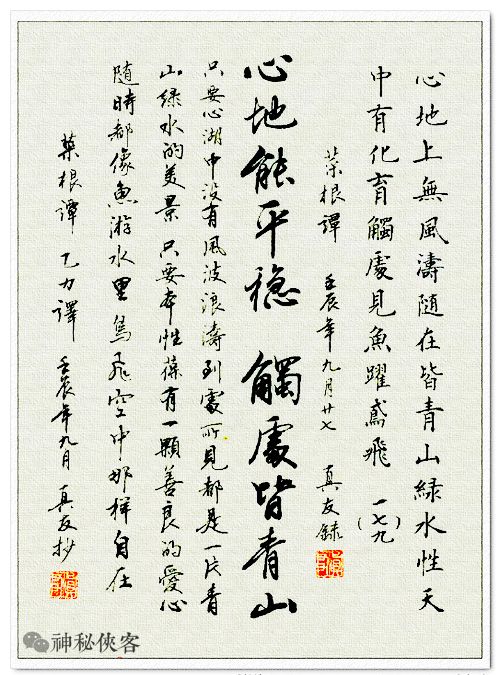 心地上無風濤随在皆青山綠水性天
中有化育觸處見魚躍鳶飛 (一七九)
菜根譚 壬辰年九月廿七 真友錄
心地能平稳 觸處皆青山
只要心湖中没有風波浪濤到處所見都是一片青
山綠水的美景 只要本性葆有一顆善良的愛心
随時都像魚游水里鳥飛空中那樣自在
菜根譚 乙力譯 壬辰年九月 真友抄
神秘俠客